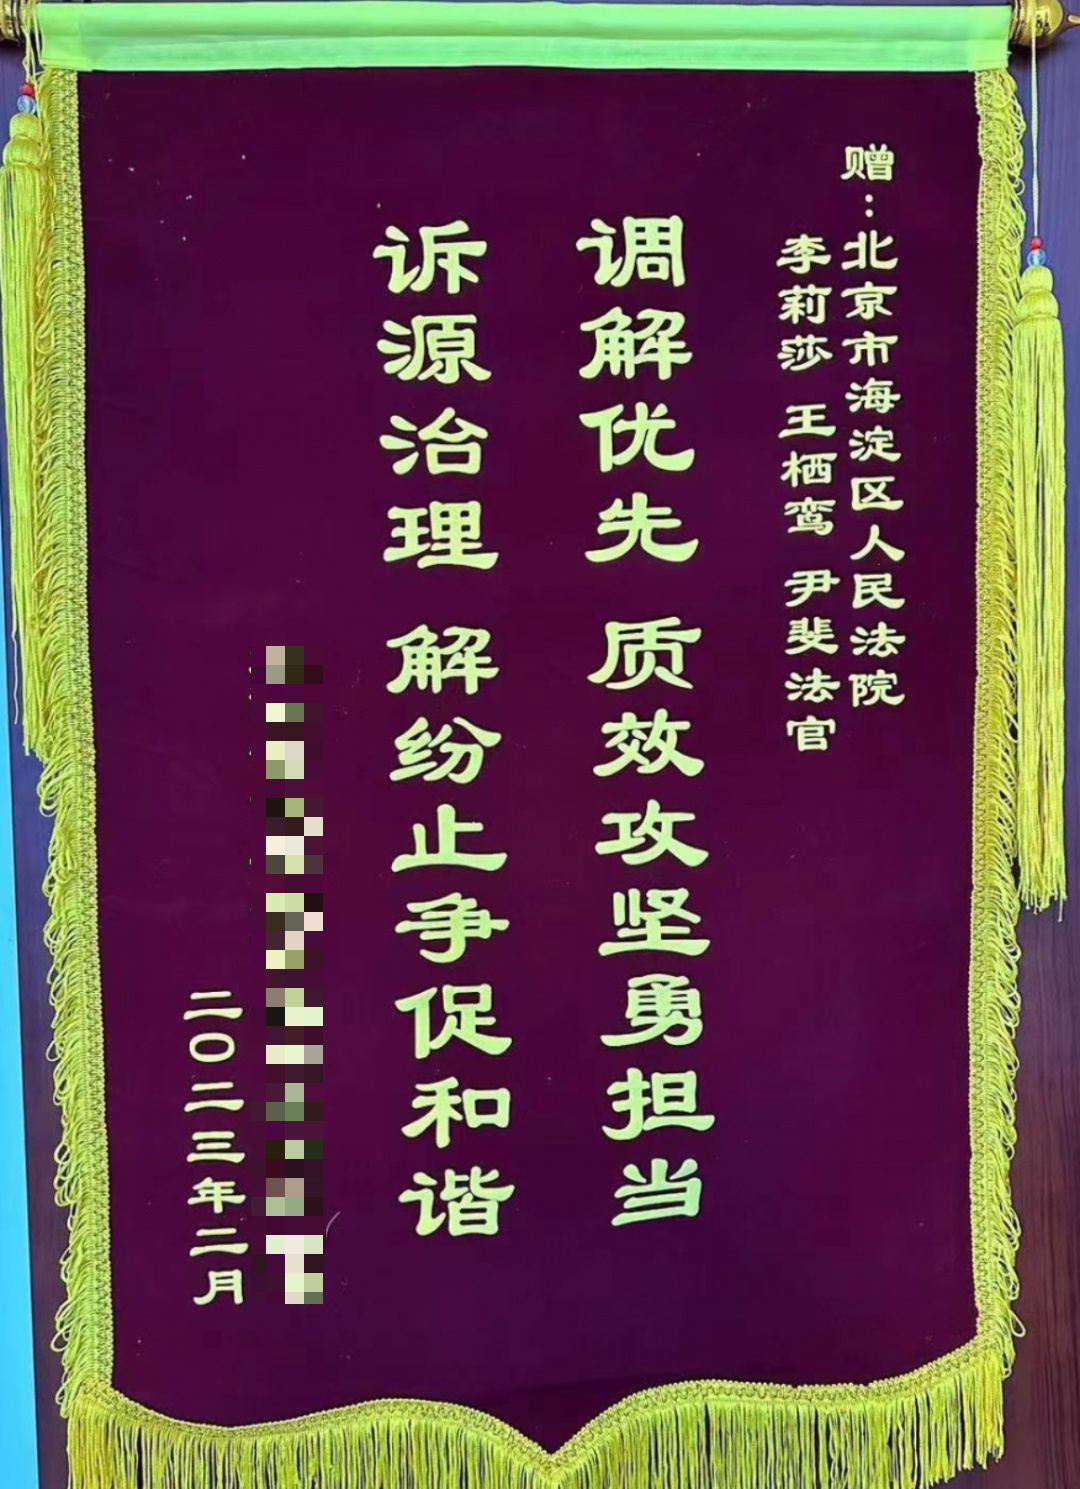 赠：北京市海淀区人民法院
李莉莎 王栖鸾 尹斐法官
调解优先 质效攻坚勇担当
诉源治理 解纷止争促和谐
二〇二三年二月